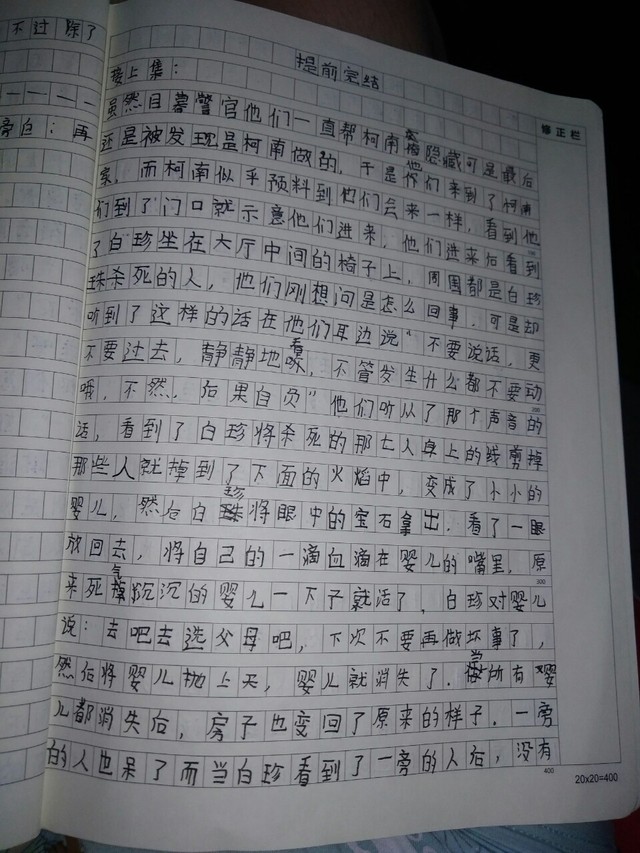 不过除了
旁白：再
提前完结
修正栏
接上集：
虽然目暮警官他们一直帮柯南隐藏可是最后
还是被发现是柯南做的，于是他们来到了柯南
家，而柯南似乎预料到他们会来一样，看到他
们到了门口就示意他们进来，他们进来后看到
了白珍坐在大厅中间的椅子上，周围都是白珍
珠杀死的人，他们刚想问是怎么回事，可是却
听到了这样的话在他们耳边说“不要说话，更
不要过去，静静地看，不管发生什么都不要动
哦，不然，后果自负”他们听从了那个声音的
话，看到了白珍将杀死的那七人身上的线剪掉
那些人就掉到了下面的火焰中，变成了小小的
婴儿，然后白珍将眼中的宝石拿出，看了一眼
放回去，将自己的一滴血滴在婴儿的嘴里，原
来死气沉沉的婴儿一下子就活了，白珍对婴儿
说：去吧去选父母吧，下次不要再做坏事了，
然后将婴儿抛上天，婴儿就消失了．当所有婴
儿都消失后，房子也变回了原来的样子．一旁
的人也呆了而当白珍看到了一旁的人后，没有
200
300
400
20x20=400